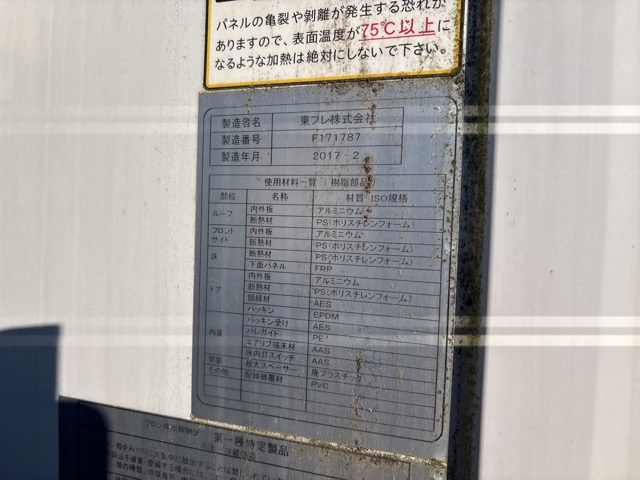 パネルの亀裂や剥離が発生する恐れが
ありますので、表面温度が75℃以上に
なるような加熱は絶対にしないで下さい。
製造者名 東プレ株式会社
製造番号 F171787
製造年月 2017-2
使用材料一覧（樹脂部品）
部位 名称 材質 ISO規格
ルーフ 内外板 アルミニウム
断熱材 PS(ポリスチレンフォーム)
フロント サイド 内外板 アルミニウム
断熱材 PS(ポリスチレンフォーム)
床 断熱材 PS(ポリスチレンフォーム)
下面パネル FRP
ドア 内外板 アルミニウム
断熱材 PS(ポリスチレンフォーム)
額縁材 AES
パッキン EPDM
パッキン受け AES
内装 バレガイド PE
エアリブ端末材 AAS
庫内灯スイッチ AAS
架装 根太スペーサー 廃プラスチック
その他 配線被覆材 PVC
フロン排出抑制法 第一種特定製品